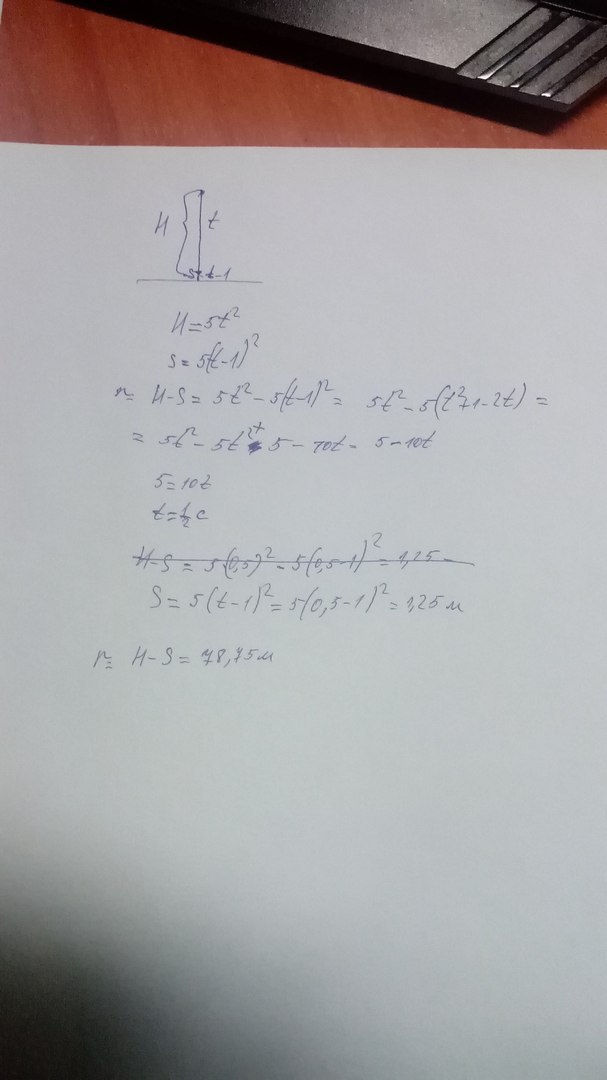 H t
S t-1
H=5t²
S=5(t-1)²
r= H-S= 5t²-5(t-1)²= 5t²-5(t²+1-2t) =
= 5t²-5t²+5-10t= 5-10t
5=10t
t=½c
H-S = 5(0,5)²-5(0,5-1)²=1,25
S=5(t-1)²=5(0,5-1)²=1,25м
r= H-S=78,75м